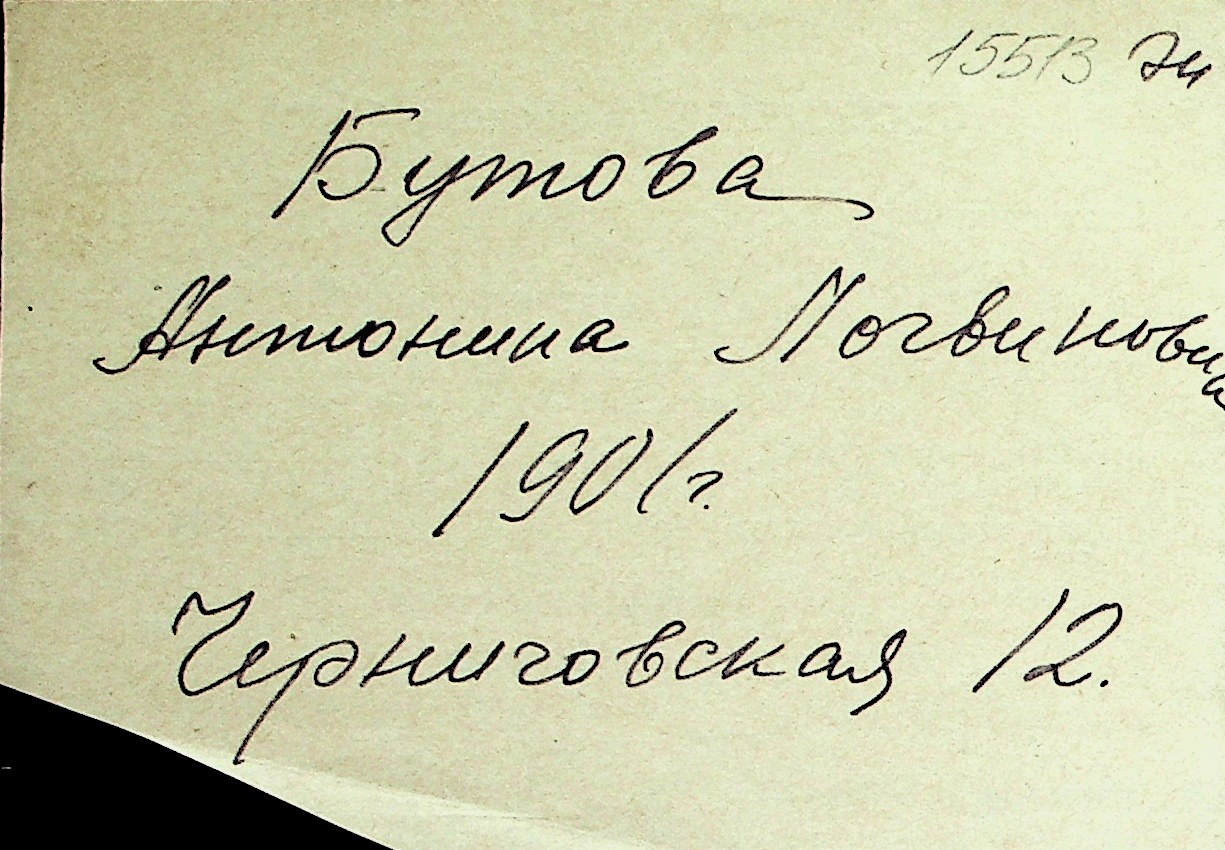 15513
Бутова
Антонина Логвиновна
1901г.
Черниговская 12.